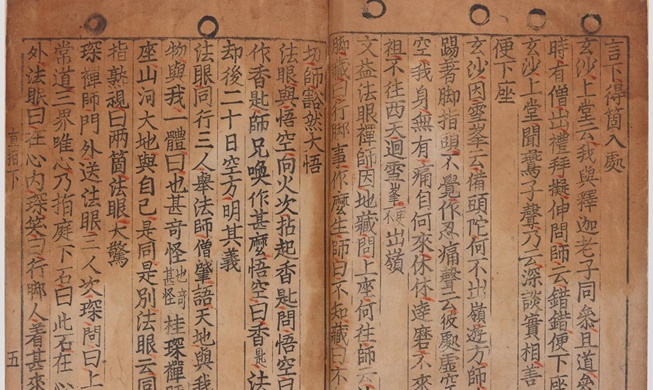 言下得箇入處
玄沙上堂云我與釋迦老子同叅且道叅
時有僧出禮拜擬伸問師云錯錯便下座
玄沙上堂聞鷰子聲乃云深談實相善
便下座
玄沙因雪峯云備頭陀何不出嶺遊方師
踢著脚指頭不覺作忍痛聲云彼處虛空
空我身無有痛自何來休休達磨不來
祖不往西天迴雪峯出嶺
文益法眼禪師因地藏問上座何往師云
脚藏曰行脚事作麽生師曰不知藏曰不
切師豁然大悟
法眼與悟空向火次拈起香匙問悟空曰
作香匙師兄喚作甚麽悟空曰香匙法
却後二十日空方明其義
法眼同行三人擧法師僧肇語天地與我
物與我一體曰也甚奇怪地奇甚怪桂琛禪
座山河大地與自己是同是別法眼云同
指熟視曰兩箇法眼大驚
琛禪師門外送法眼三人次琛問曰上
常道三界唯心乃指庭下石曰此石在心
外法眼曰在心內琛笑曰行脚人著甚來
直指下 五